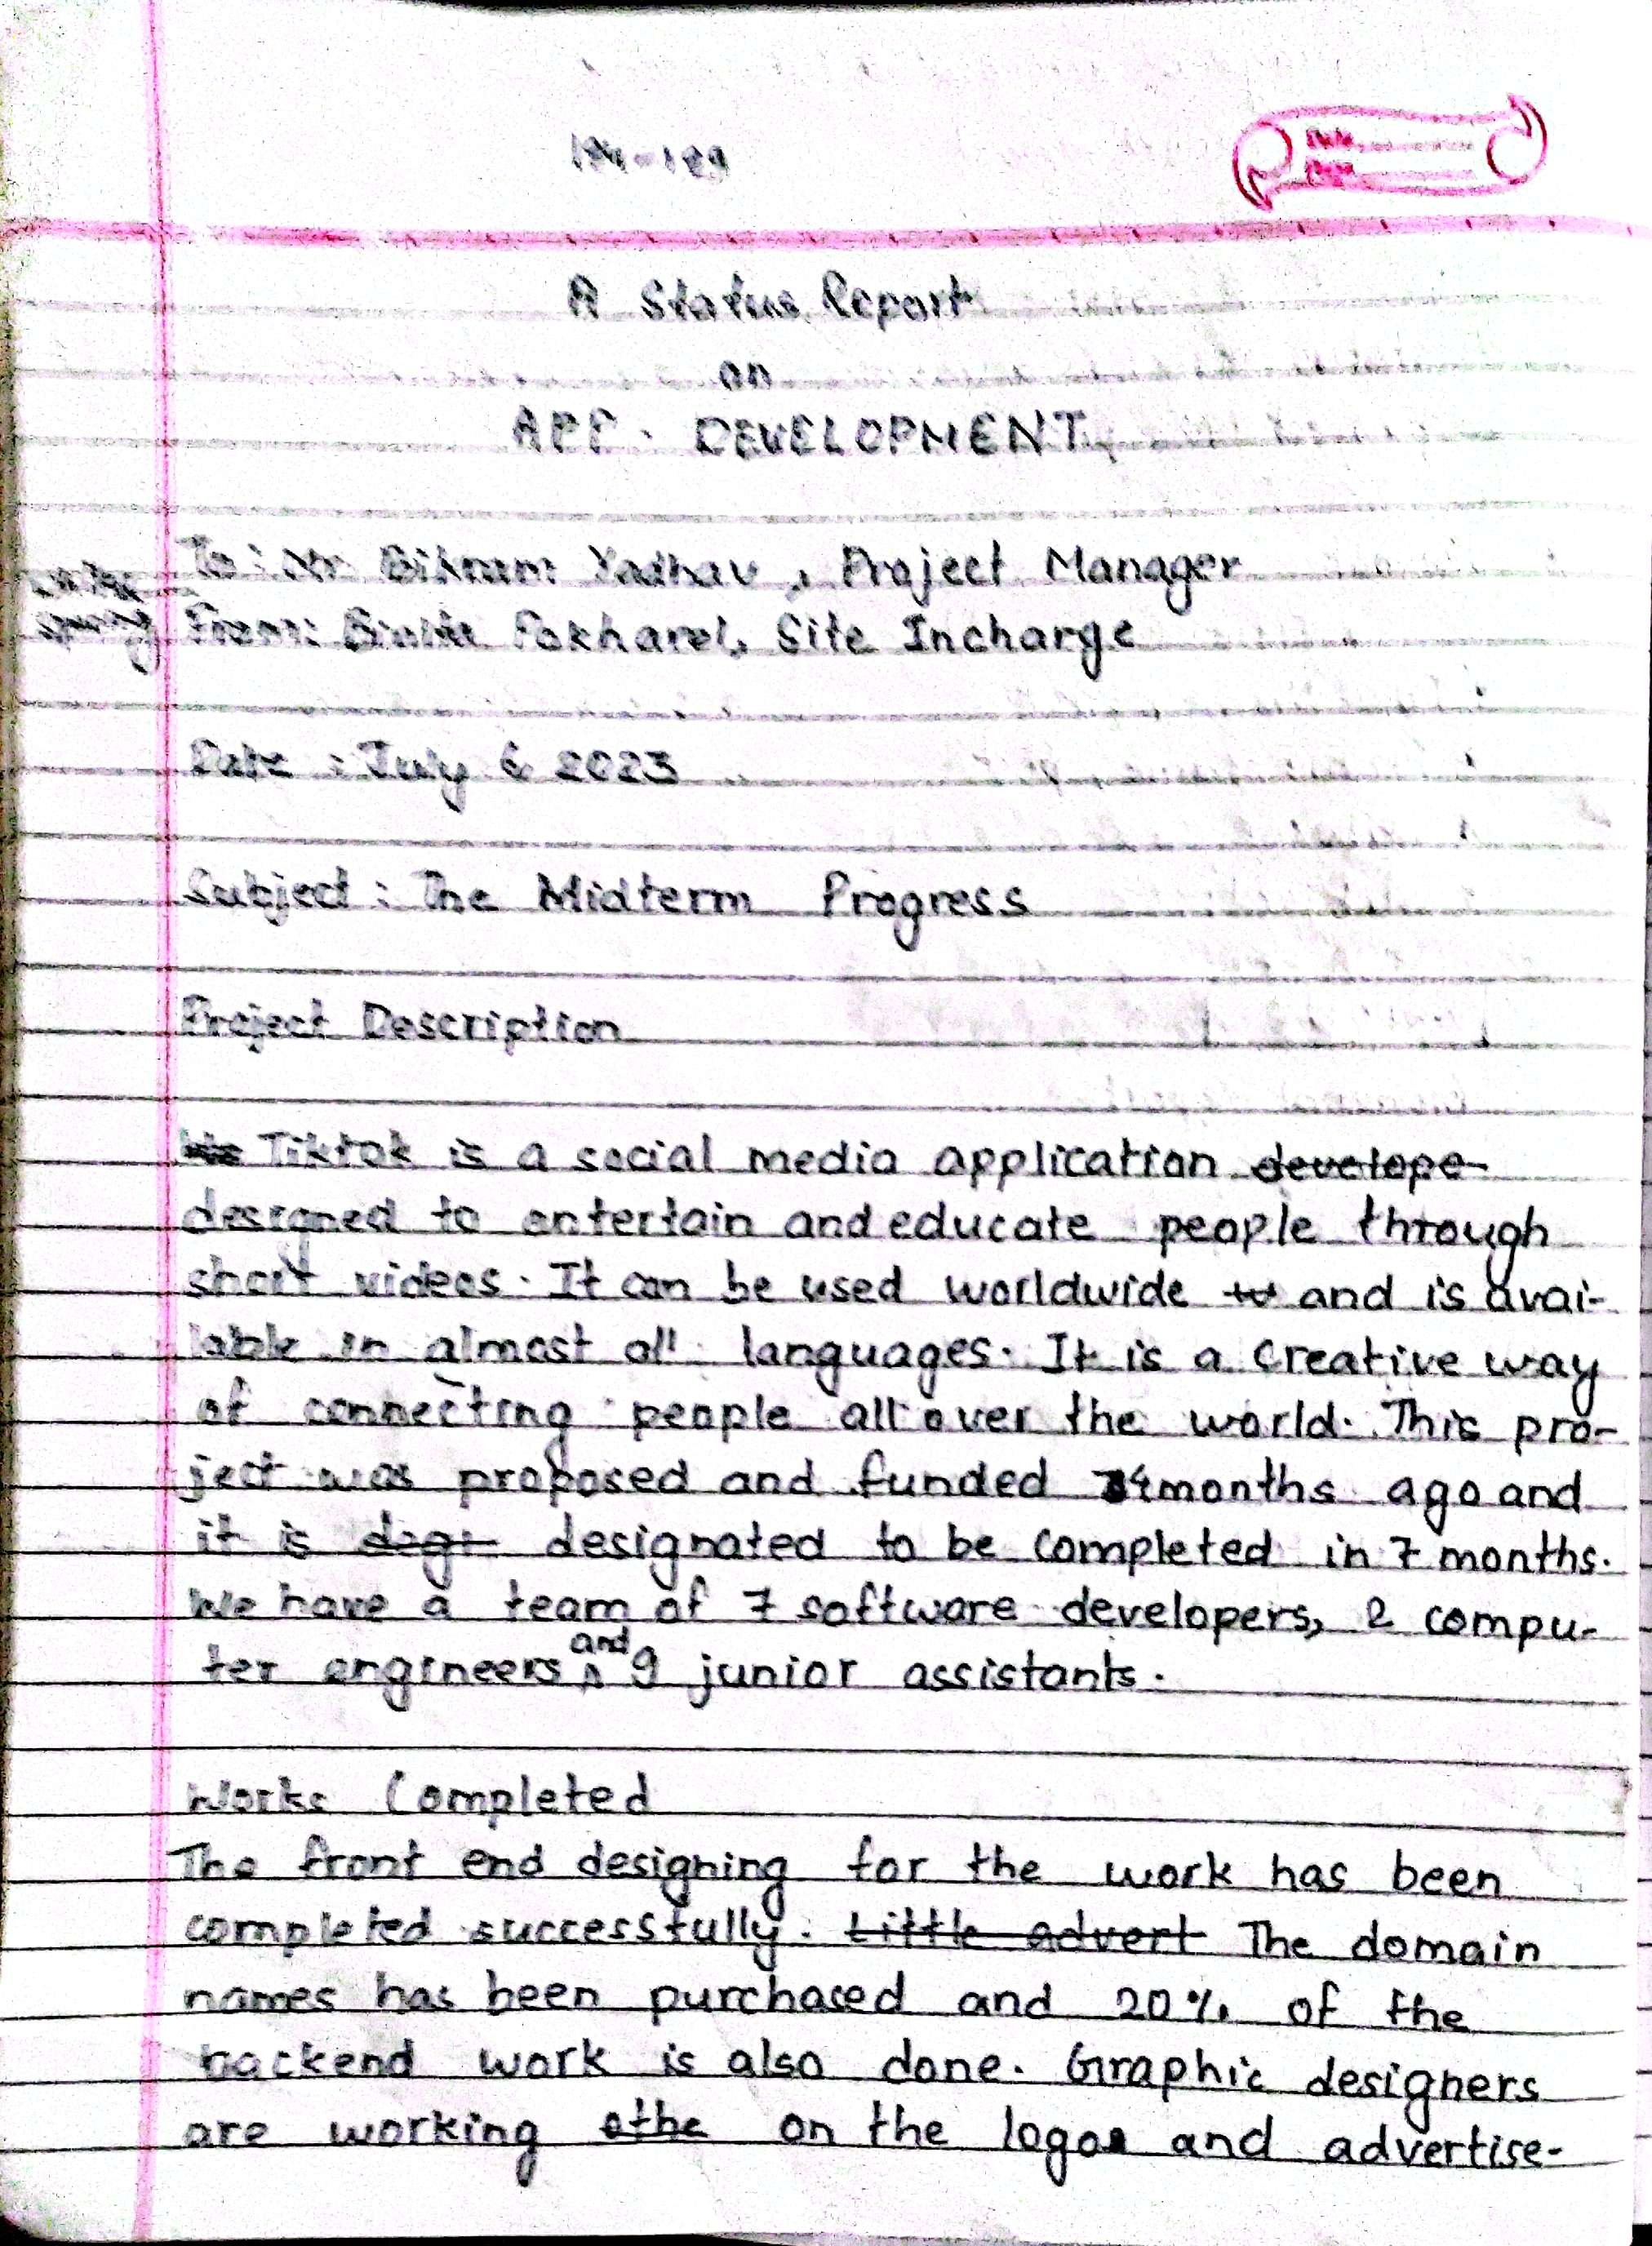 A Status Report
on
APP. DEVELOPMENT
To: Mr Bikram Yadhav, Project Manager
From: Pokharel, Site Incharge
Date : July 6 2023
Subject : The Midterm Progress
Project Description
Tiktok is a social media application develope
designed to entertain and educate people through
short videos. It can be used worldwide to and is avai-
lable in almost all languages. It is a creative way
of connecting people all over the world. This pro-
ject was proposed and funded 4 months ago and
it is degi designated to be completed in 7 months.
We have a team of 7 software developers, 2 compu-
ter engineers and 9 junior assistants.
Works Completed
The front end designing for the work has been
completed successfully. Little advert The domain
names has been purchased and 20% of the
backend work is also done. Graphic designers
are working othe on the logos and advertise-